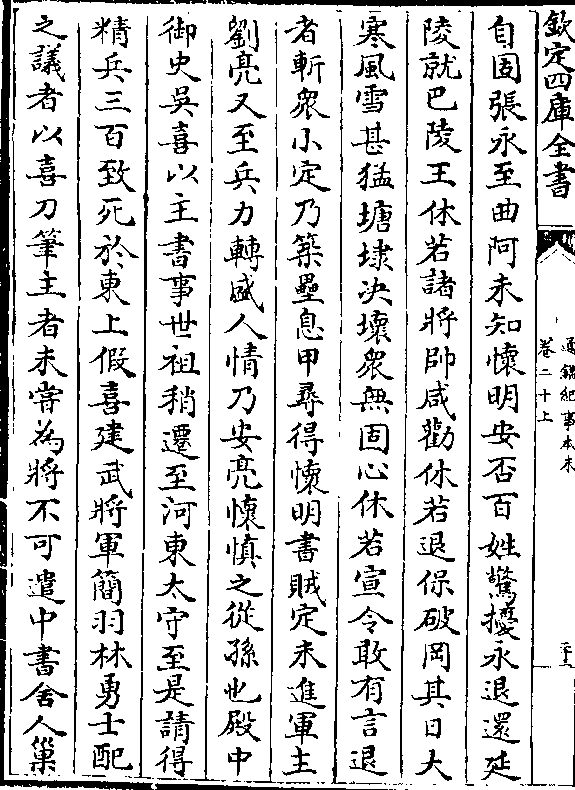 欽定四庫全書
通鑑紀事本末
卷二十上
自固張永至曲阿未知懷明安否百姓驚擾永退還延
陵就巴陵王休若諸將帥咸勸休若退保破岡其日大
寒風雪甚猛塘埭决壞衆無固心休若宣令敢有言退
者斬衆小定乃築壘息甲尋得懷明書賊定未進軍主
劉亮又至兵力轉盛人情乃安亮懷慎之從孫也殿中
御史吳喜以主書事世祖稍遷至河東太守至是請得
精兵三百致死於東上假喜建武將軍簡羽林勇士配
之議者以喜刀筆主者未嘗為將不可遣中書舍人巢